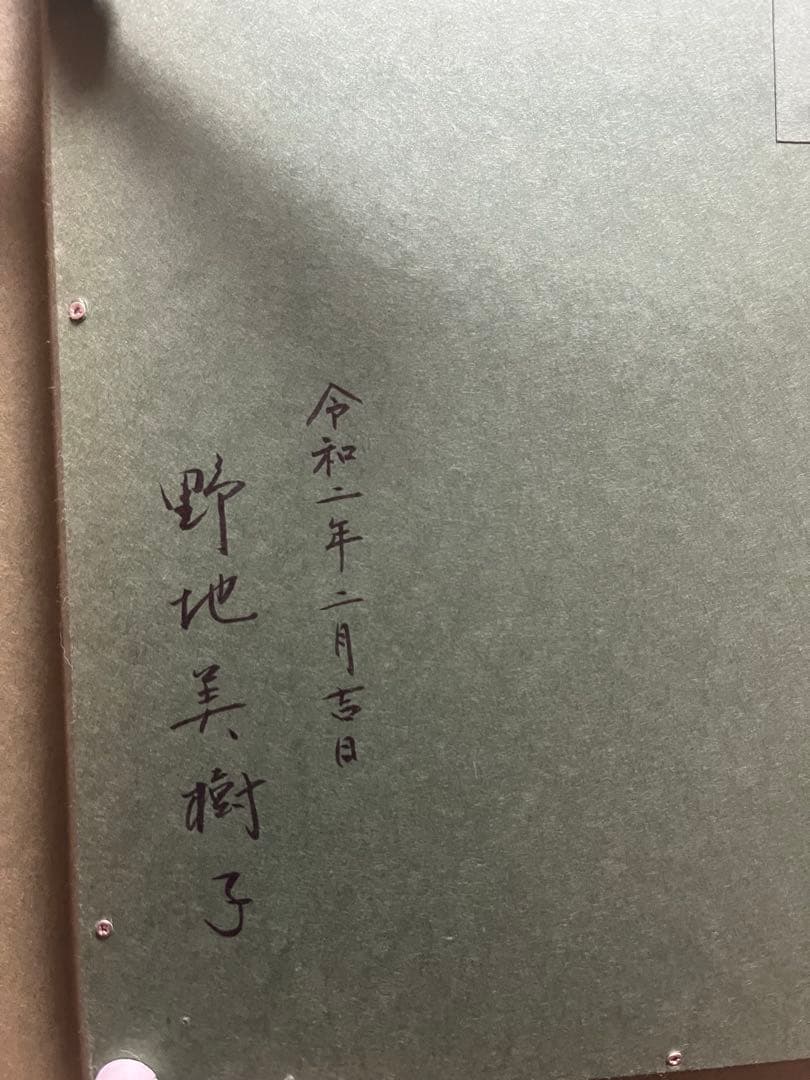 令和二年二月吉日
野地美樹子